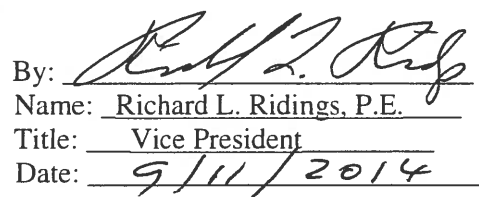 By: Richard L. Ridings
Name: Richard L. Ridings, P.E.
Title: Vice President
Date: 9/11/2014